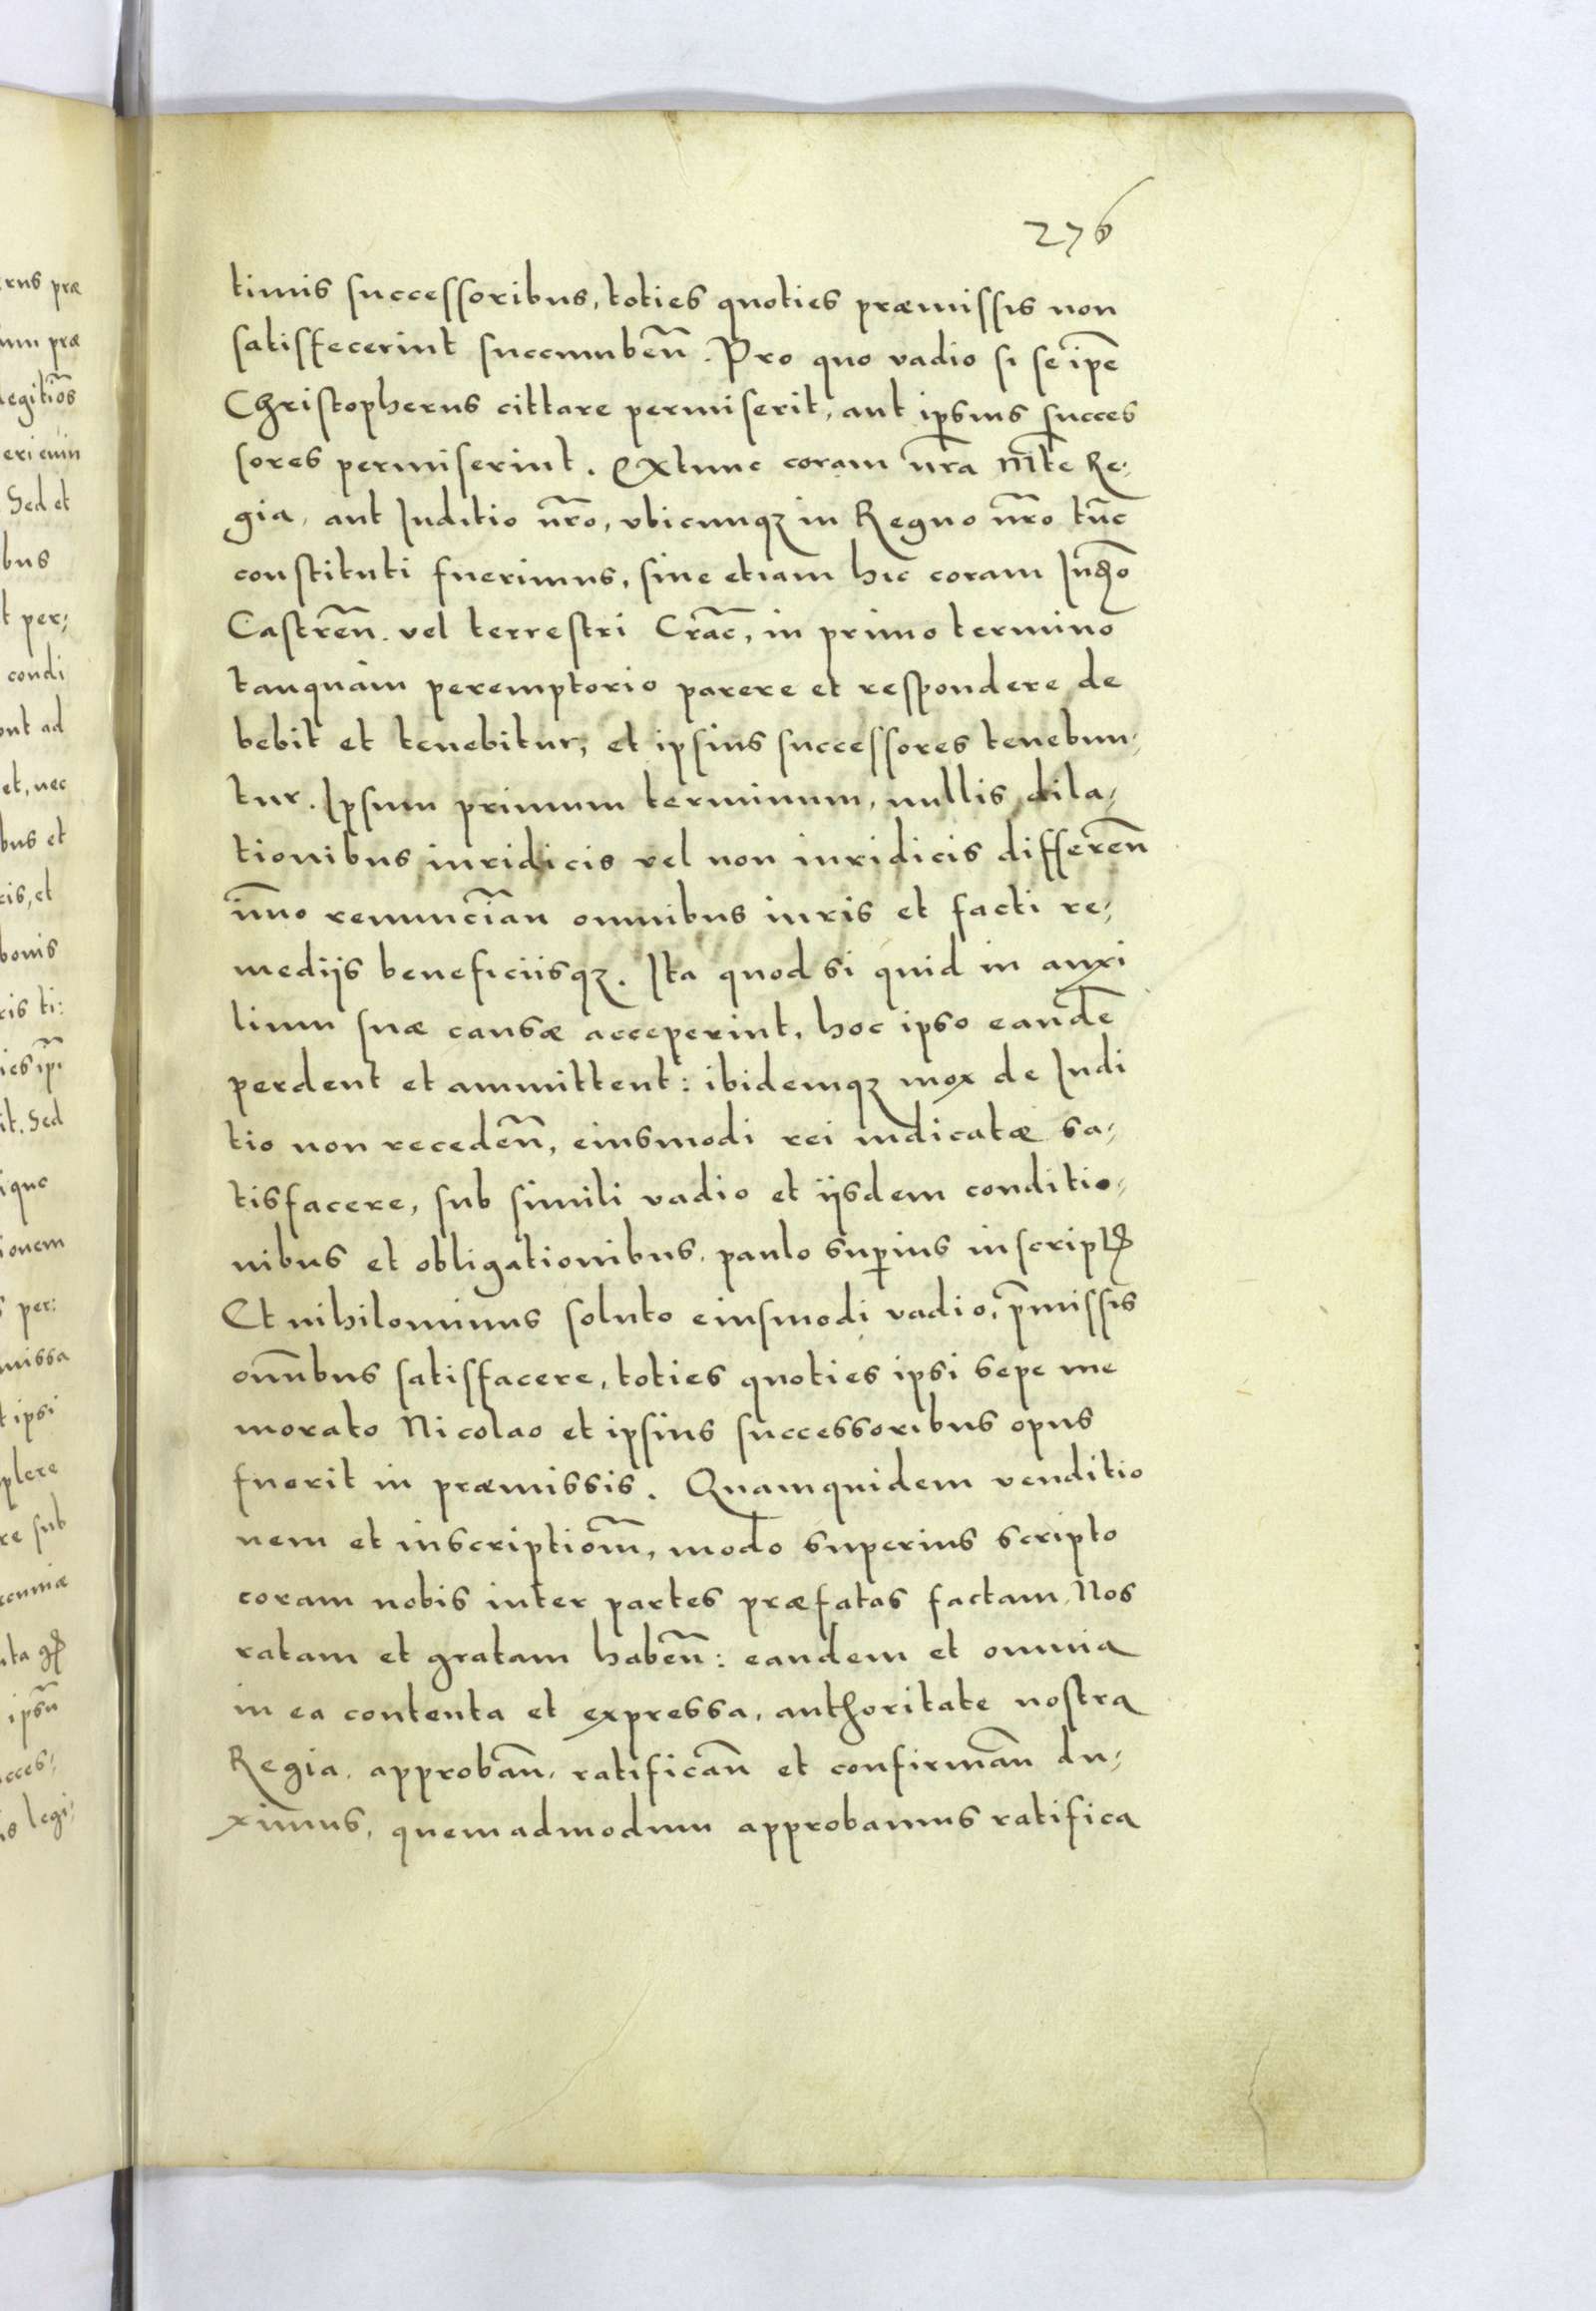 276
timis successoribus, toties quoties præmissis non
satisfecerint succumbeñ. Pro quo vadio si se ip̃e
Christopherus cittare permiserit, aut ip̃sius succes
sores permiserint. Extunc coram nr̃a Mt̃e Re-
gia, aut Iuditio nr̃o, vbicunqꝫ in Regno nr̃o tũc
constituti fuerimus, siue etiam hic coram Iud̃o
Castreñ. vel terrestri Crac̃, in primo termino
tanquàm peremptorio parere et respondere de
bebit et tenebitur, et ipsius successores tenebun-
tur. Ipsum primum terminum, nullis dila-
tionibus iuridicis vel non iuridicis differeñ
im̃o renuncĩan omnibus iuris et facti re-
medijs beneficiisqꝫ. Ita quod si quid in auxi
lium suæ causæ acceperint, hoc ipso eandẽ
perdent et ammittent: ibidemqꝫ mox de Iudi
tio non recedeñ, eiusmodi rei iudicatæ sa-
tisfacere, sub simili vadio et ijsdem conditio-
nibus et obligationibus, paulo sup̃ius inscriptꝭ
Et nihilominus soluto eiusmodi vadio, p̃missis
om̃ibus satisfacere, toties quoties ipsi sepe me
morato Nicolao et ipsius successoribus opus
fuerit in præmissis. Quamquidem venditio
nem et inscriptiom̃, modo superius scripto
coram nobis inter partes præfatas factam, Nos
ratam et gratam habeñ: eandem et omnia
in ea contenta et expressa, authoritate nostra
Regia, approbañ, ratificañ et confirmañ du-
ximus, quemadmodum approbamus ratifica